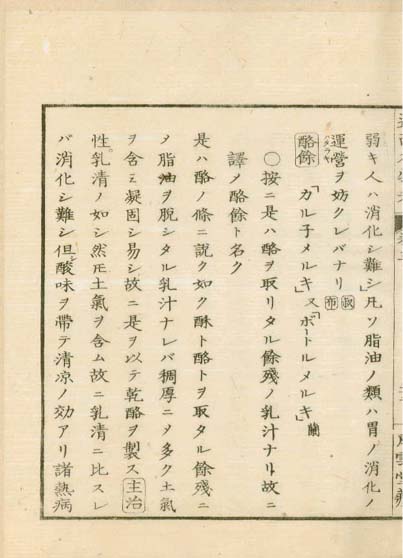 弱キ人ハ消化シ難シ」凡ソ脂油ノ類ハ胃ノ消化ノ
運營ヲ妨クレバナリ
ハタラキ
酪餘 「カル子メルキ」又「ボートルメルキ」蘭
○按ニ是ハ酪ヲ取リタル餘殘ノ乳汁ナリ故ニ
譯〆酪餘ト名ク
是ハ酪ノ條ニ說ク如ク酥ト酪トヲ取タル餘殘ニ
〆脂油ヲ脫シタル乳汁ナレバ稠厚ニ〆多ク土氣
ヲ含ミ凝固シ易シ故ニ是ヲ以テ乾酪ヲ製ス 主治
性乳清ノ如シ然𪜈土氣ヲ含ム故ニ乳清ニ比スレ
バ消化シ難シ但シ酸味ヲ帶テ清凉ノ効アリ諸熱病